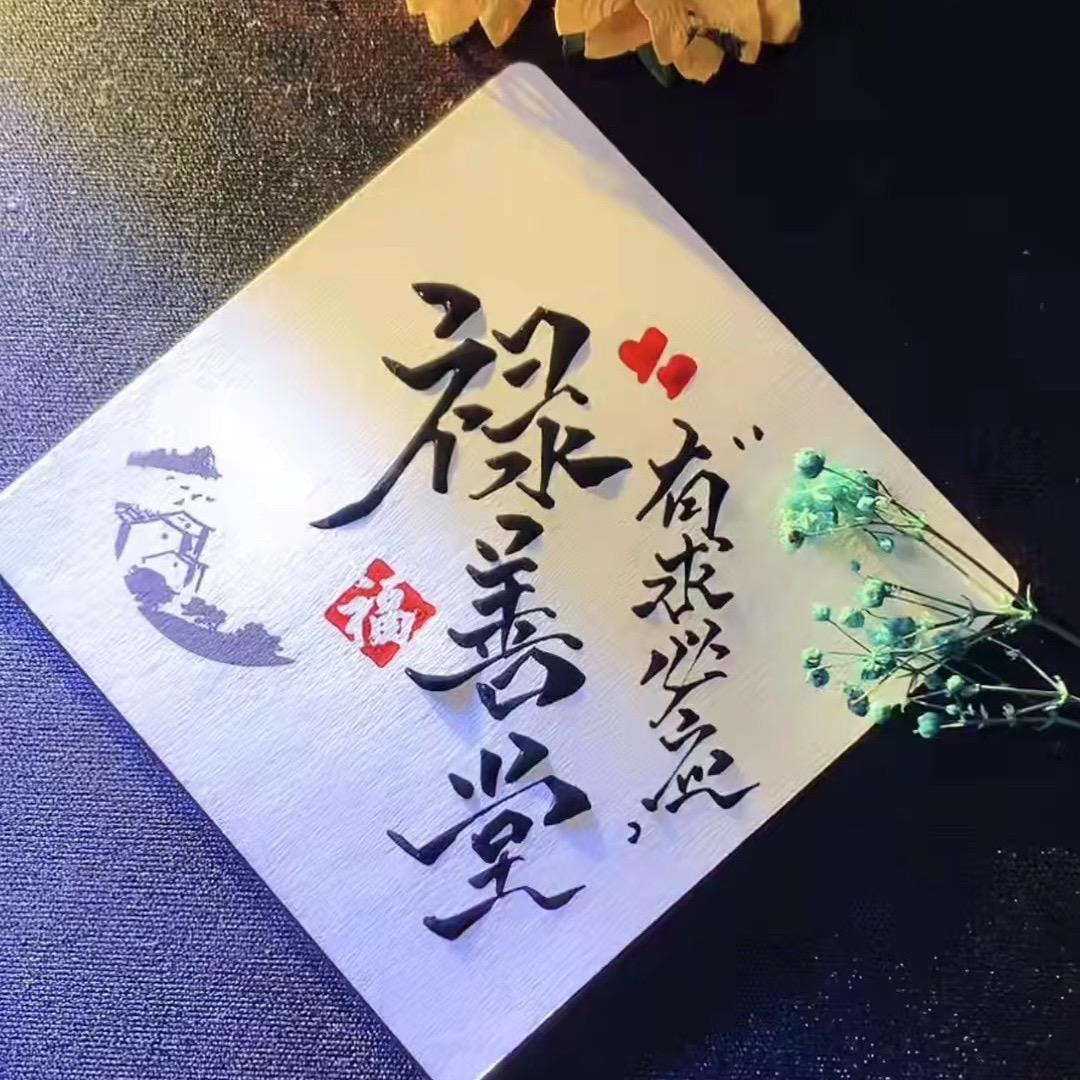 “有求必应”
禄善堂
福